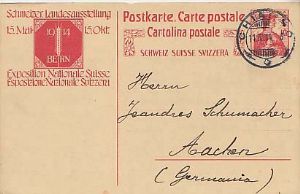 Schweizer Landesausstellung
15. Mai 15. Okt.
1914
BERN
Exposition Nationale Suisse
Esposizione Nazionale Svizzera
Postkarte. Carte postale
Cartolina postale
SCHWEIZ SUISSE SVIZZERA
Herrn
Jeandres Schumacher
Aachen
(Germania)